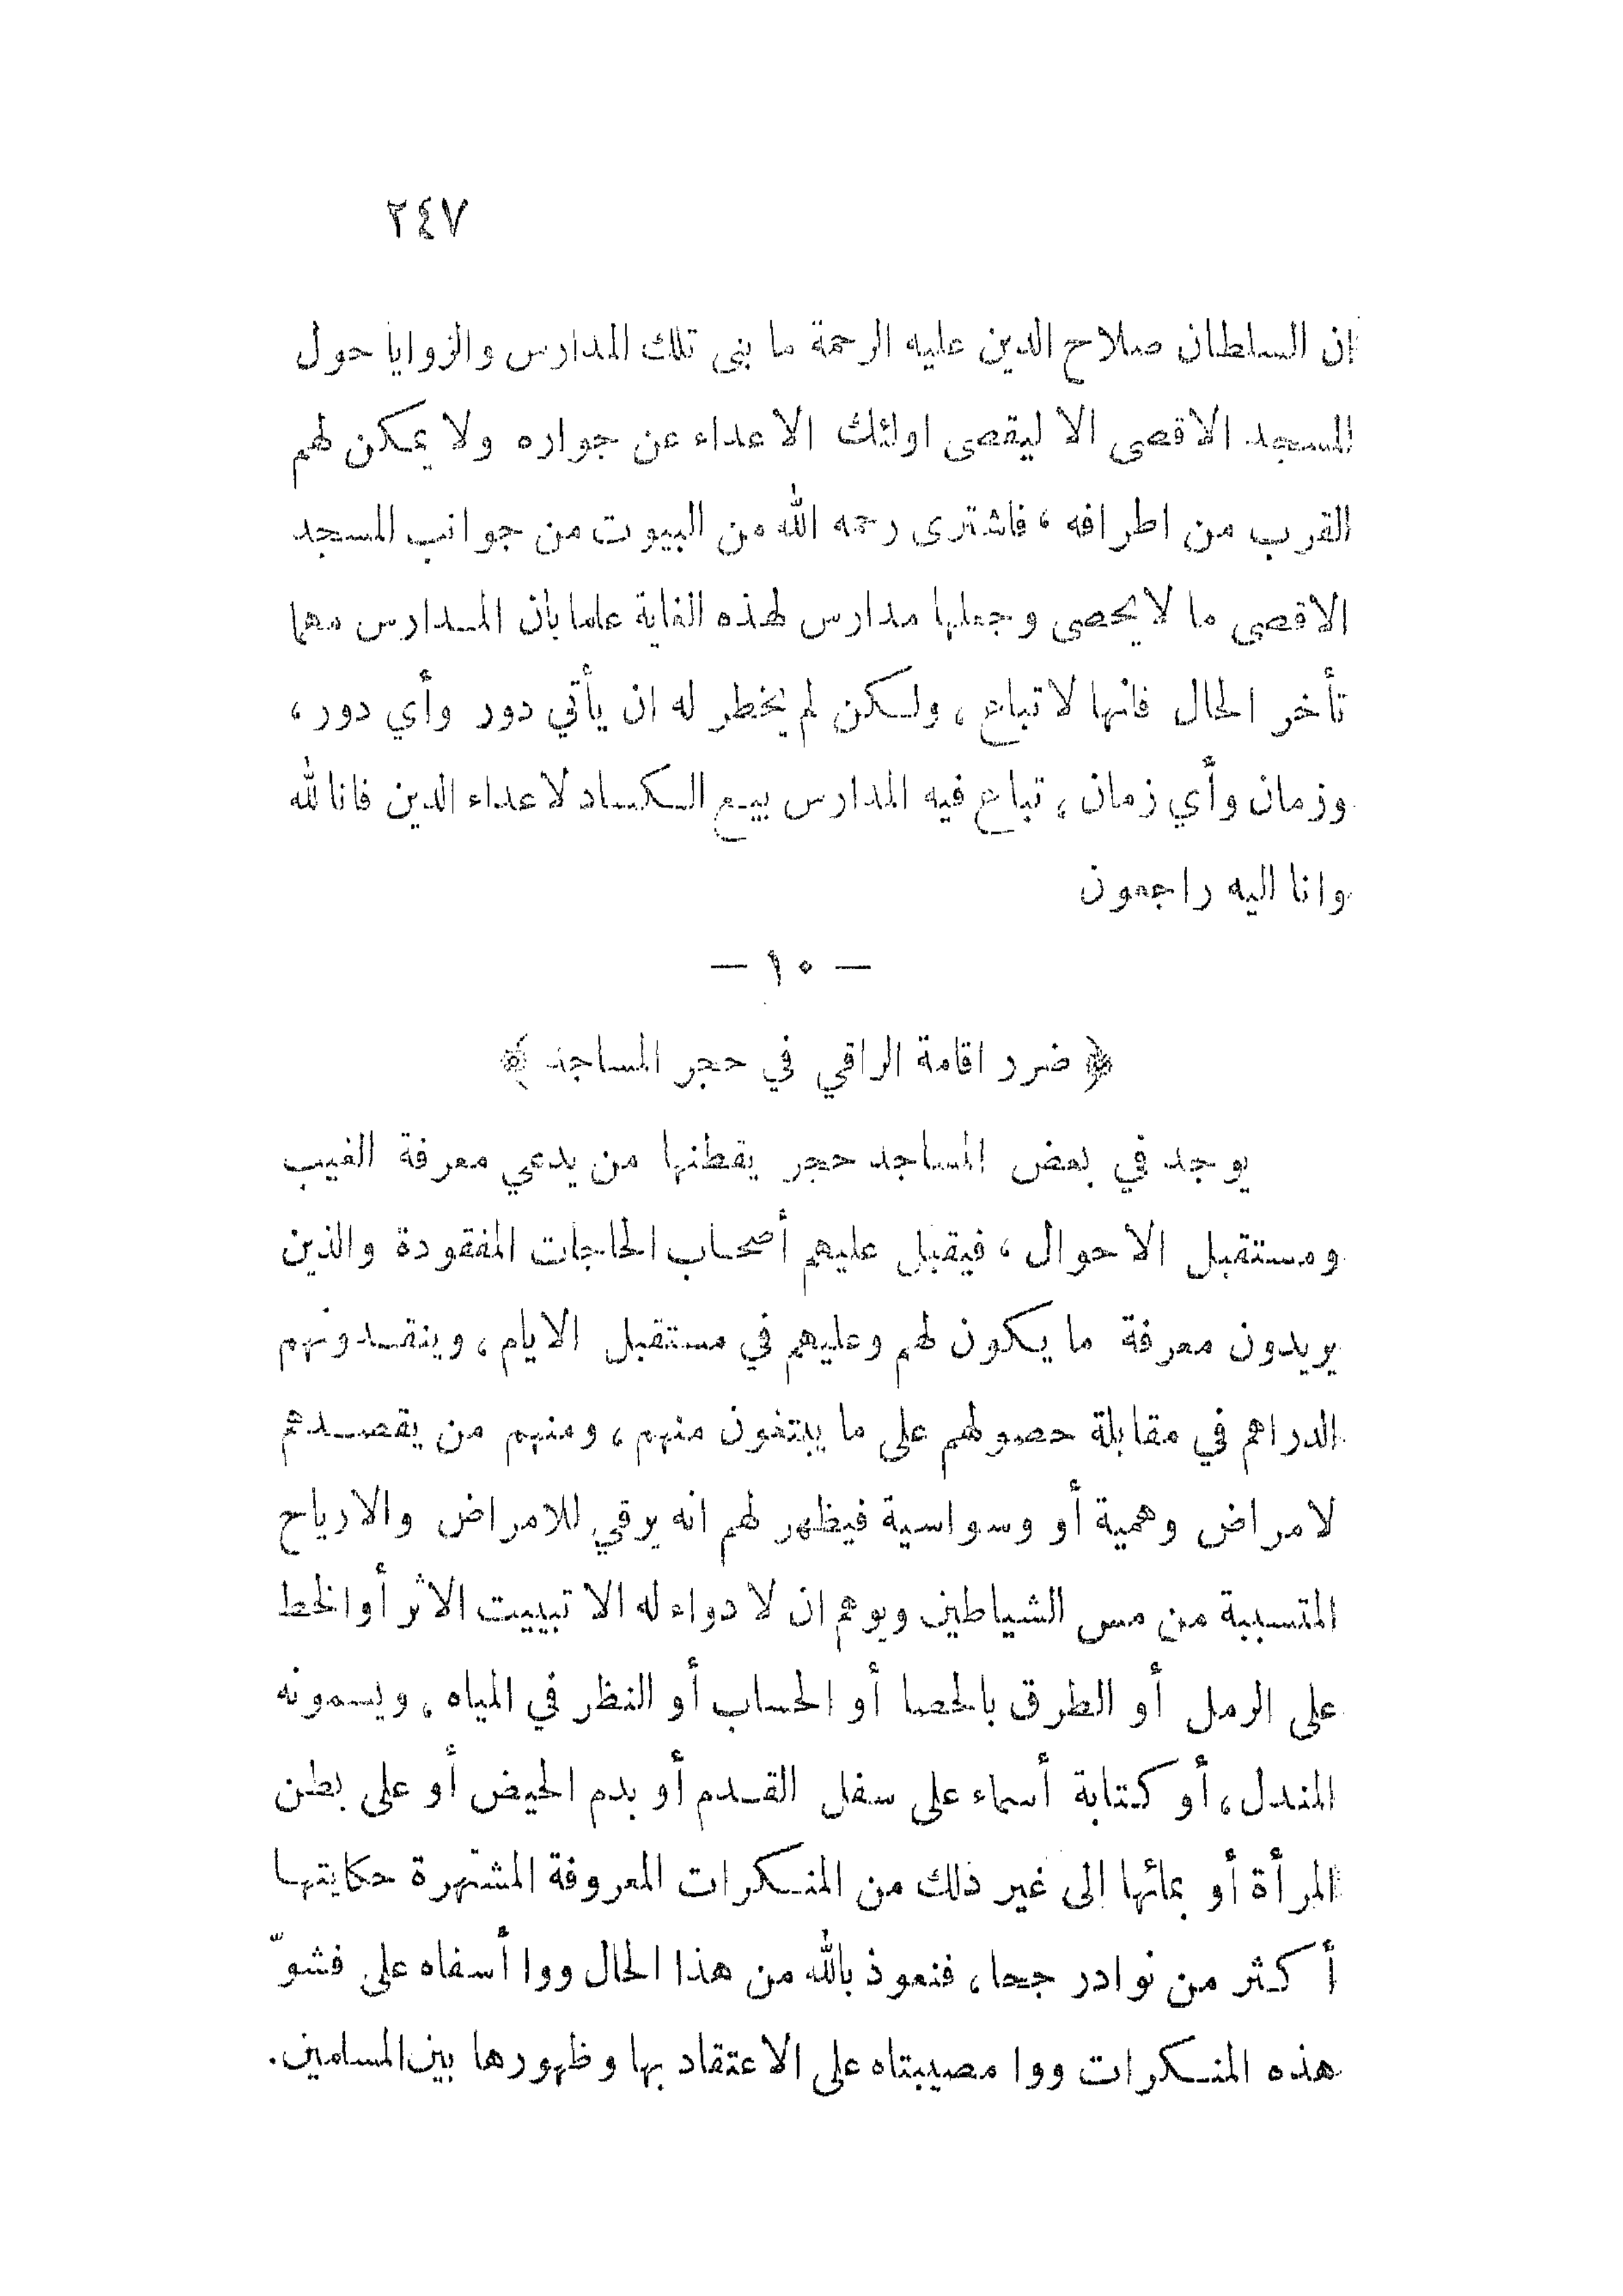 ٢٤٧
ان السلطان صلاح الدين عليه الرحمة ما بنى تلك المدارس والزوايا حول
المسجد الاقصى الا ليقصى اولئك الاعداء عن جواره ولا يمكن لهم
القرب من اطرافه ، فاشترى رحمه الله من البيوت من جوانب المسجد
الاقصى ما لا يحصى وجعلها مدارس لهذه الغاية علما بأن المدارس مهما
تأخر الحال فانها لا تباع ، ولكن لم يخطر له ان يأتي دور وأي دور ،
وزمان وأي زمان ، تباع فيه المدارس بيع الكساد لاعداء الدين فانا لله
وانا اليه راجعون
— ١٠ —
﴿ ضرر اقامة الراقي في حجر المساجد ﴾
يوجد في بعض المساجد حجر يقطنها من يدعي معرفة الغيب
ومستقبل الاحوال ، فيقبل عليهم أصحاب الحاجات المفقودة والذين
يريدون معرفة ما يكون لهم وعليهم في مستقبل الايام ، وينقدونهم
الدراهم في مقابلة حصولهم على ما يبتغون منهم ، ومنهم من يقصدهم
لامراض وهمية أو وسواسية فيظهر لهم انه يرقي للامراض والارياح
المتسببة من مس الشياطين ويوهم ان لا دواء له الا تبييت الاثر أو الخط
على الرمل أو الطرق بالحصا أو الحساب أو النظر في المياه ، ويسمونه
المندل ، أو كتابة أسماء على سفل القدم أو بدم الحيض أو على بطن
المرأة أو بمائها إلى غير ذلك من المنكرات المعروفة المشتهرة حكايتها
أكثر من نوادر جحا ، فنعوذ بالله من هذا الحال ووا أسفاه على فشوّ
هذه المنكرات ووا مصيبتاه على الاعتقاد بها وظهورها بين المسلمين .